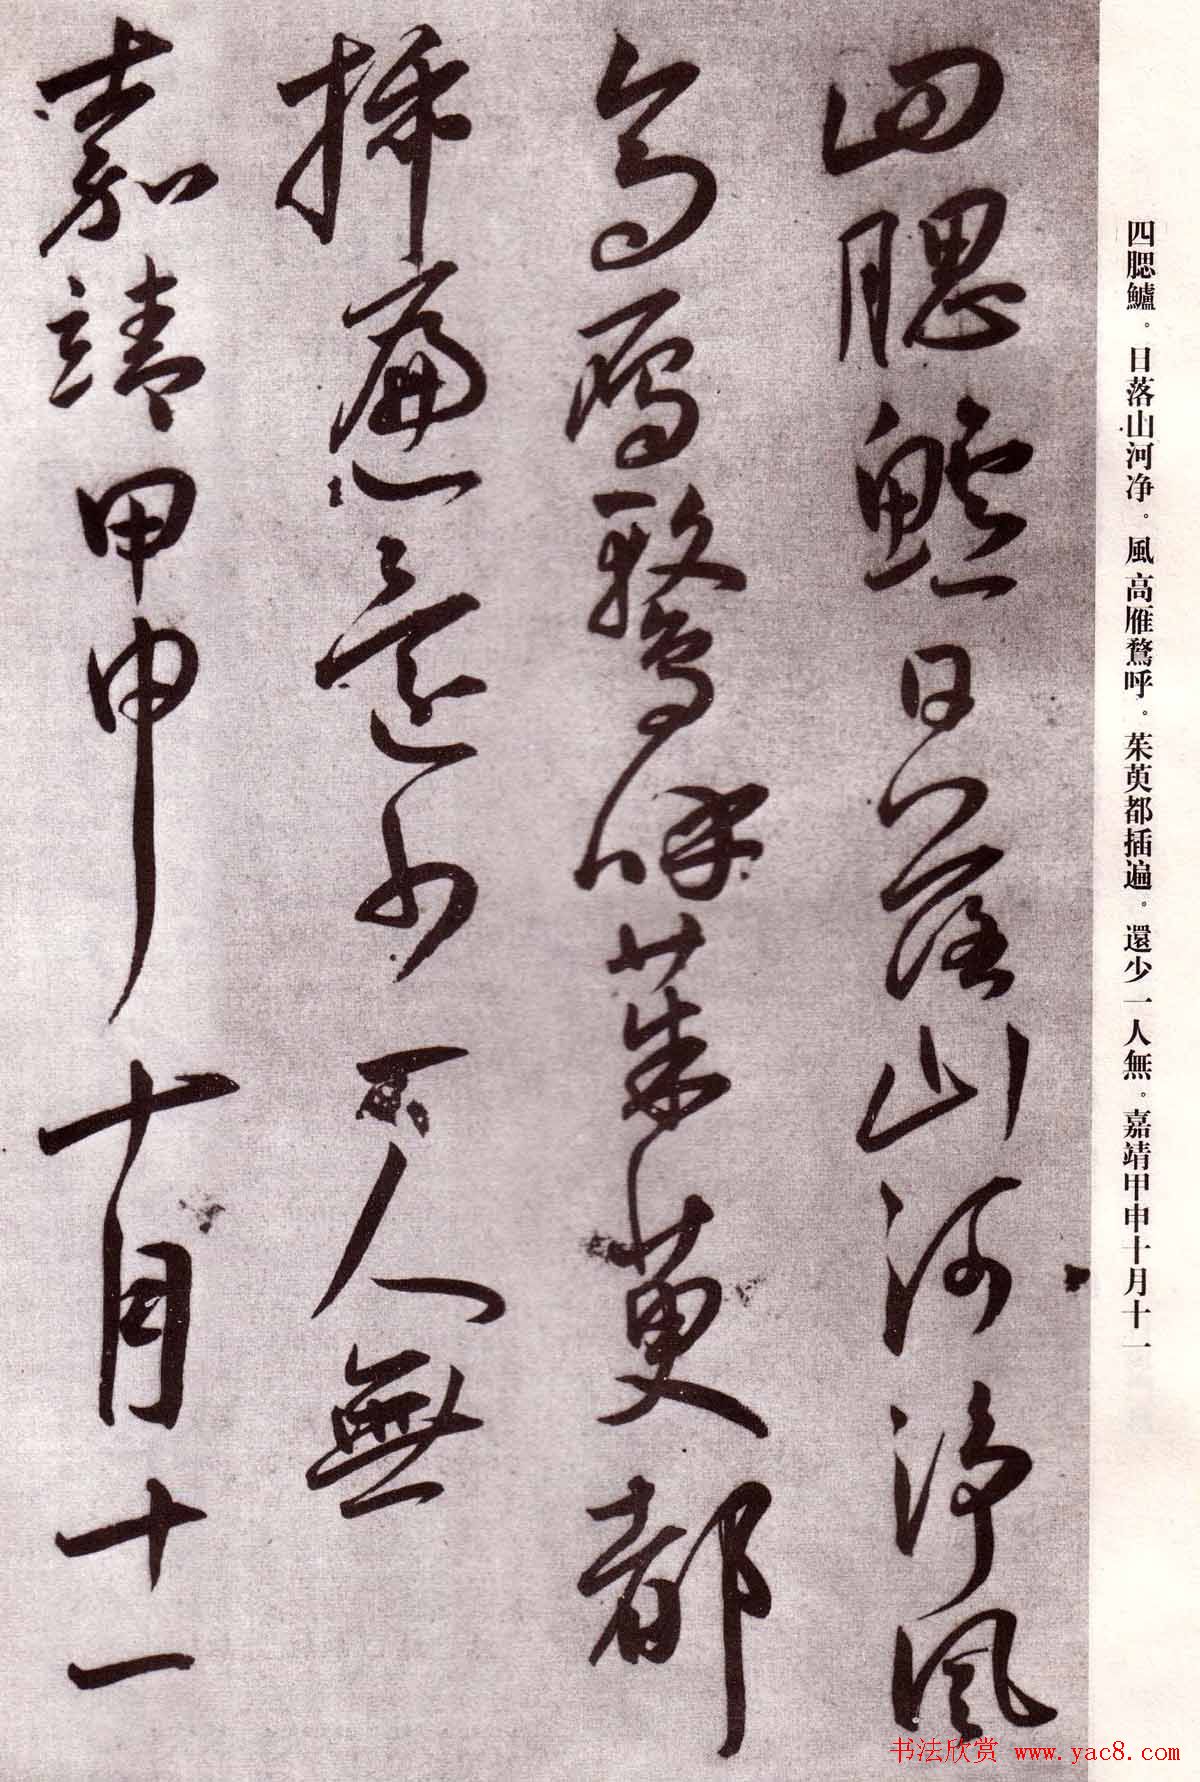 四腮鱸。日落山河净。風高雁鶩呼。茱萸都插遍。還少一人無。嘉靖甲申十月十一
四腮鱸日落山河淨風
高雁鶩呼茱萸都
插遍還少一人無
嘉靖甲申十月十一
书法欣赏 www.yac8.com